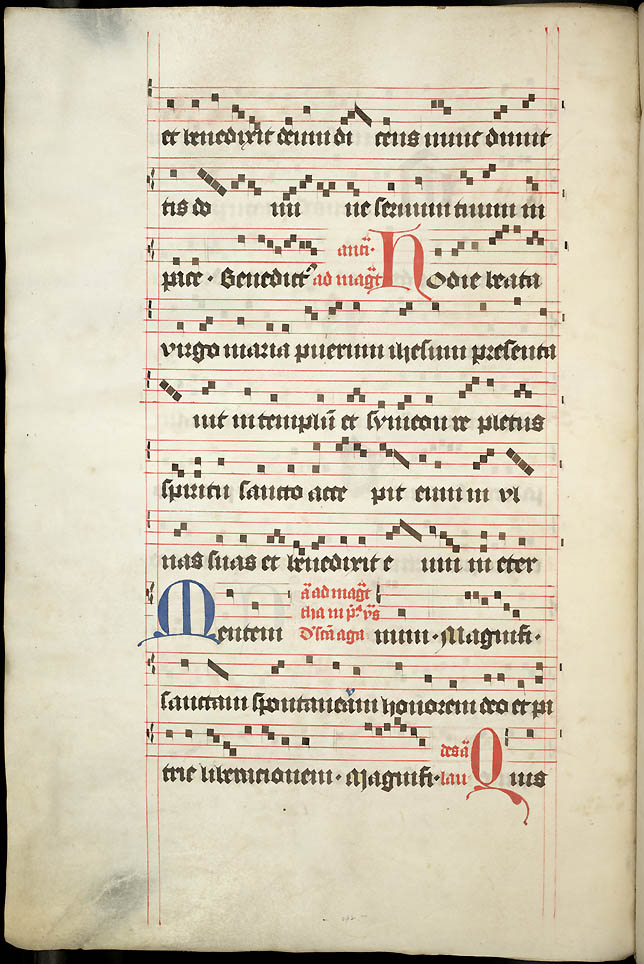 et benedixit deum di cens nunc dimit
tis do mi ne seruum tuum in
pace · Benedict᷒ antī· ad magt̄ Hodie beata
virgo maria puerum ihesum presenta
uit in templū et symeon re pletus
spiritu sancto acce pit eum in vl
nas suas et benedixit e um in eter
Mentem ā ad magt̄ num · Magnifi·
sanctam spontaneam honorem deo et pa
trie liberacionem · Magnifi· lau Quis